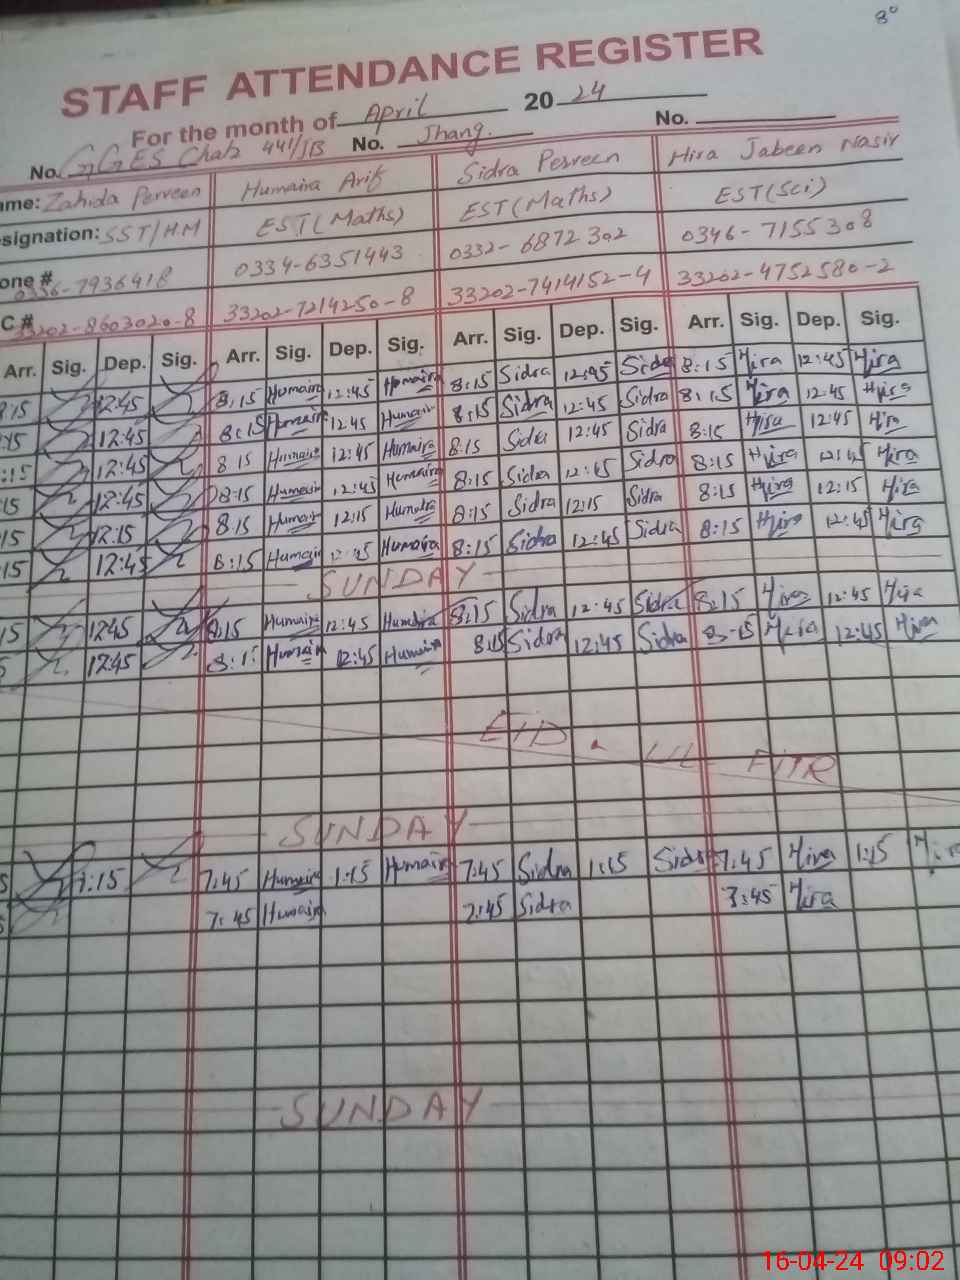 8°
STAFF ATTENDANCE REGISTER
For the month of April 2024
No. GGES Chak 441/JB No. Jhang. No.
ame: Zahida Perveen Humaira Arif Sidra Perveen Hira Jabeen Nasir
signation: SST/H.M EST(Maths) EST(Maths) EST(Sci)
one # 0336-7936418 0334-6351443 0332-6872302 0346-7155308
C # 33202-8603020-8 33202-7214250-8 33202-7414152-4 33202-4752580-2
Arr. Sig. Dep. Sig. Arr. Sig. Dep. Sig. Arr. Sig. Dep. Sig. Arr. Sig. Dep. Sig.
8:15 12:45 8:15 Humaira 12:45 Humaira 8:15 Sidra 12:45 Sidra 8:15 Hira 12:45 Hira
:15 12:45 8:15 Humaira 12:45 Humaira 8:15 Sidra 12:45 Sidra 8:15 Hira 12:45 Hira
:15 12:45 8:15 Humaira 12:45 Humaira 8:15 Sidra 12:45 Sidra 8:15 Hira 12:45 Hira
15 12:45 8:15 Humaira 12:45 Humaira 8:15 Sidra 12:45 Sidra 8:15 Hira 12:45 Hira
15 12:15 8:15 Humaira 12:15 Humaira 8:15 Sidra 12:15 Sidra 8:15 Hira 12:15 Hira
15 12:45 8:15 Humaira 12:45 Humaira 8:15 Sidra 12:45 Sidra 8:15 Hira 12:45 Hira
SUNDAY
15 12:45 8:15 Humaira 12:45 Humaira 8:15 Sidra 12:45 Sidra 8:15 Hira 12:45 Hira
5 12:45 8:15 Humaira 12:45 Humaira 8:15 Sidra 12:45 Sidra 8:15 Hira 12:45 Hira
EID. UL FITR
SUNDAY
5 1:15 7:45 Humaira 1:15 Humaira 7:45 Sidra 1:15 Sidra 7:45 Hira 1:15 Hira
7:45 Humaira 7:45 Sidra 7:45 Hira
SUNDAY
16-04-24 09:02